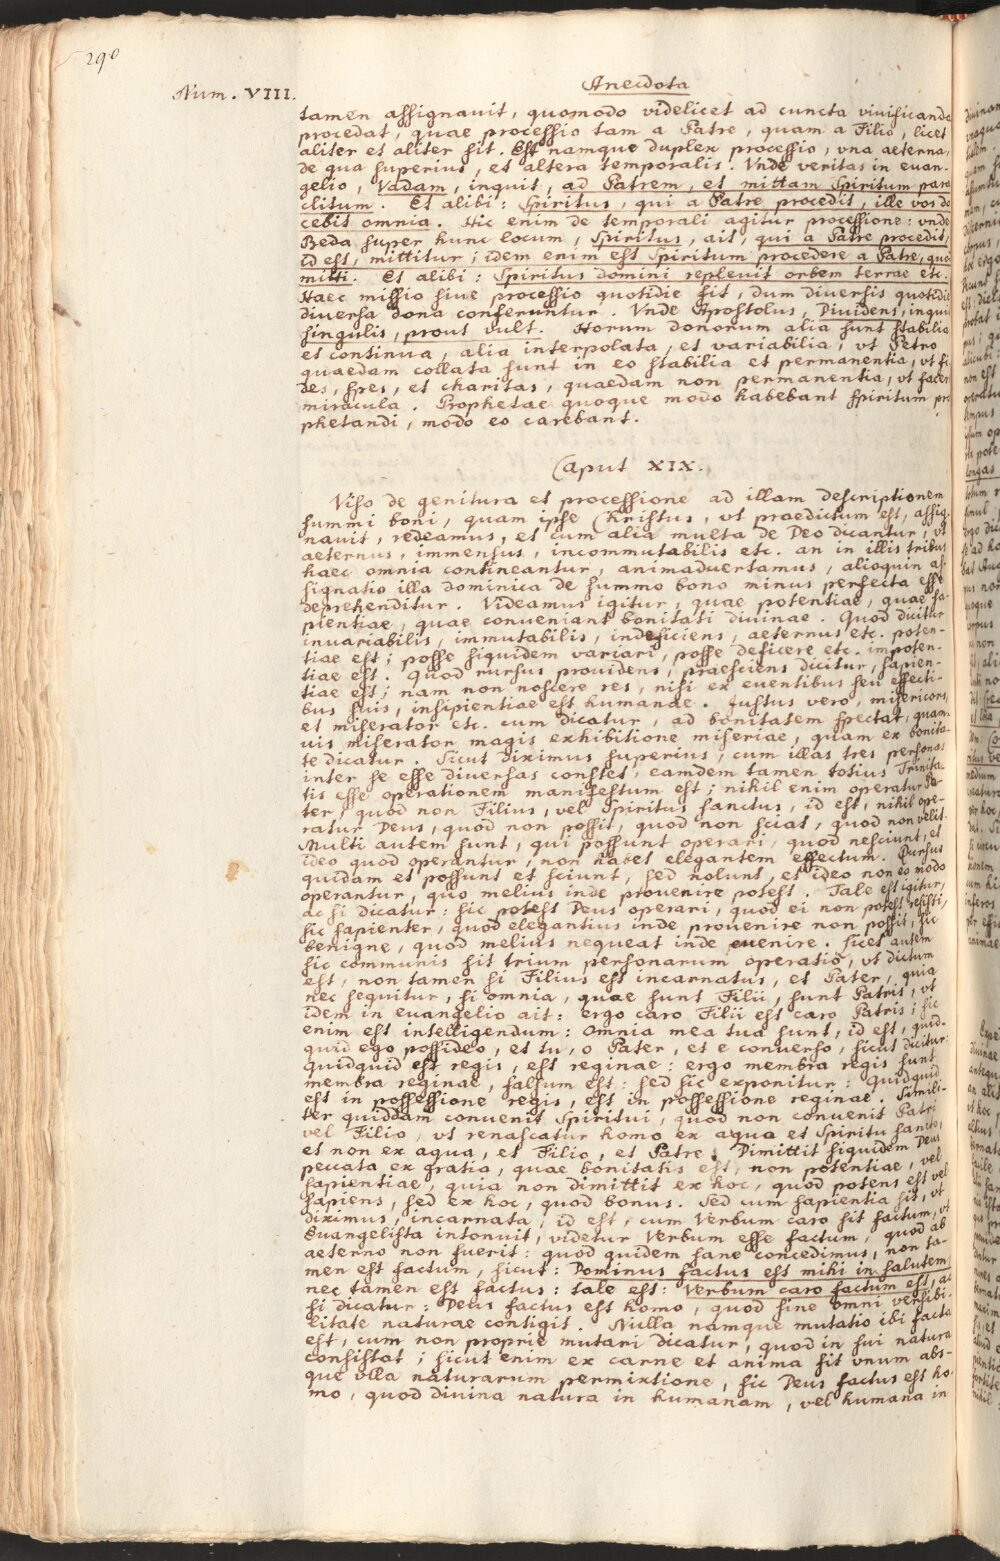 290
Num. VIII.
Anecdota
tamen assignauit, quomodo videlicet ad cuncta viuificanda
procedat, quae processio tam a Patre, quam a Filio, licet
aliter et aliter sit. Est namque duplex processio, vna aeterna,
de qua superius, et altera temporalis. Vnde veritas in euan-
gelio, Vadam, inquit, ad Patrem, et mittam Spiritum para
clitum. Et alibi: Spiritus, qui a Patre procedit, ille vos do
cebit omnia. Hic enim de temporali agitur processione: vnde
Beda super hunc locum, Spiritus, ait, qui a Patre procedit,
id est, mittitur; idem enim est Spiritum procedere a Patre, quo
mitti. Et alibi: Spiritus domini repleuit orbem terrae etc.
Haec missio siue processio quotidie fit, dum diuersis quotidie
diuersa dona conferuntur. Vnde Apostolus, Diuidens, inqui
singulis, prout vult. Horum donorum alia sunt stabilia
et continua, alia interpolata, et variabilia, vt Petro
quaedam collata sunt in eo stabilia et permanentia, vt fi
des, spes, et charitas, quaedam non permanentia, vt facer
miracula. Prophetae quoque modo habebant spiritum pro
phetandi, modo eo carebant.
Caput XIX.
Viso de genitura et processione ad illam descriptionem
summi boni, quam ipse Christus, vt praedictum est, assig-
nauit, redeamus, et cum alia multa de Deo dicantur, vt
aeternus, immensus, incommutabilis etc. an in illis tribus
haec omnia contineantur, animaduertamus, alioquin as
signatio illa dominica de summo bono minus perfecta esse
deprehenditur. Videamus igitur, quae potentiae, quae sa-
pientiae, quae conueniant bonitati diuinae. Quod dicitur
inuariabilis, immutabilis, indeficiens, aeternus etc. poten-
tiae est; posse siquidem variari, posse deficere etc. impoten-
tiae est. Quod rursus prouidens, praesciens dicitur, sapien-
tiae est; nam non noscere res, nisi ex euentibus seu effecti-
bus suis, insipientiae est humanae. Justus vero, misericors,
et miserator etc. cum dicatur, ad bonitatem spectat, quam-
uis miserator magis exhibitione miseriae, quam ex bonita-
te dicatur. Sicut diximus superius, cum illas tres personas
inter se esse diuersas constet, eamdem tamen totius Trinita-
tis esse operationem manifestum est; nihil enim operatur Pa-
ter, quod non Filius, vel Spiritus sanctus, id est, nihil ope-
ratur Deus, quod non possit, quod non sciat, quod non velit.
Multi autem sunt, qui possunt operari, quod nesciunt, et
ideo quod operantur, non habet elegantem effectum. Rursus
quidam et possunt et sciunt, sed nolunt, et ideo non eo modo
operantur, quo melius inde prouenire potest. Tale est igitur,
ac si dicatur: sic potest Deus operari, quod ei non potest resisti,
sic sapienter, quod elegantius inde prouenire non possit, sic
benigne, quod melius nequeat inde euenire. Licet autem
sic communis sit trium personarum operatio, vt dictum
est, non tamen si Filius est incarnatus, et Pater, quia
nec sequitur, si omnia, quae sunt Filii, sunt Patris, vt
idem in euangelio ait: ergo caro Filii est caro Patris; sic
enim est intelligendum: Omnia mea tua sunt, id est, quid-
quid ego possideo, et tu, o Pater, et e conuerso, sicut dicitur:
quidquid est regis, est reginae: ergo membra regis sunt
membra reginae, falsum est: sed sic exponitur: Quidquid
est in possessione regis, est in possessione reginae. Simili-
ter quiddam conuenit Spiritui, quod non conuenit Patri
vel Filio, vt renascatur homo ex aqua et Spiritu sancto,
et non ex aqua, et Filio, et Patre. Dimittit siquidem Deus
peccata ex gratia, quae bonitatis est, non potentiae, vel
sapientiae, quia non dimittit ex hoc, quod potens est vel
sapiens, sed ex hoc, quod bonus. Sed cum sapientia sit, vt
diximus, incarnata, id est, cum Verbum caro sit factum, vt
Euangelista intonuit, videtur Verbum esse factum, quod ab
aeterno non fuerit: quod quidem sane concedimus, non ta-
men est factum, sicut: Dominus factus est mihi in salutem,
nec tamen est factus: tale est: Verbum caro factum est, ac
si dicatur: Deus factus est homo, quod sine omni versibi-
litate naturae contigit. Nulla namque mutatio ibi facta
est, cum non proprie mutari dicatur, quod in sui natura
consistat; sicut enim ex carne et anima fit vnum abs-
que vlla naturarum permixtione, sic Deus factus est ho-
mo, quod diuina natura in humanam, vel humana in